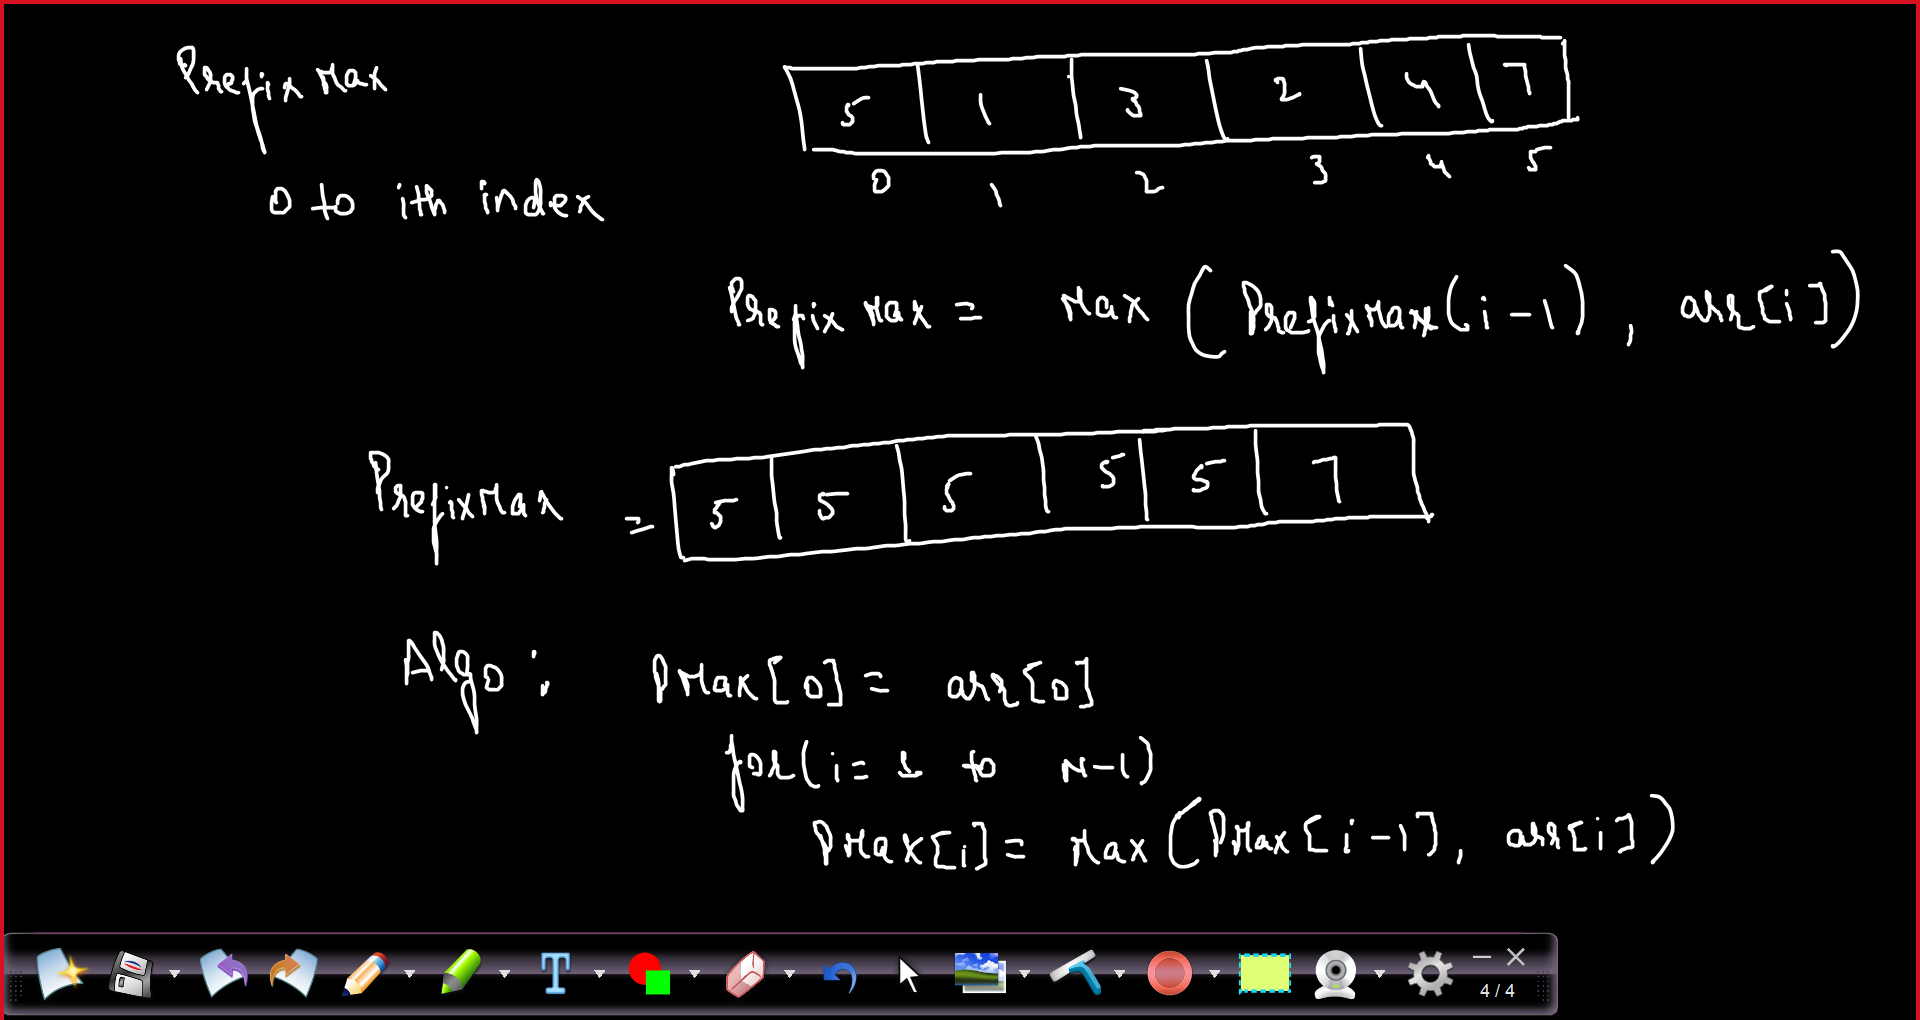 Prefix Max
5 1 3 2 4 7
0 1 2 3 4 5
0 to ith index
Prefix Max = Max (PrefixMax(i-1), arr[i])
PrefixMax = 5 5 5 5 5 7
Algo : PMax[0] = arr[0]
for(i= 1 to N-1)
PMax[i] = Max (PMax[i-1], arr[i])
T
4 / 4